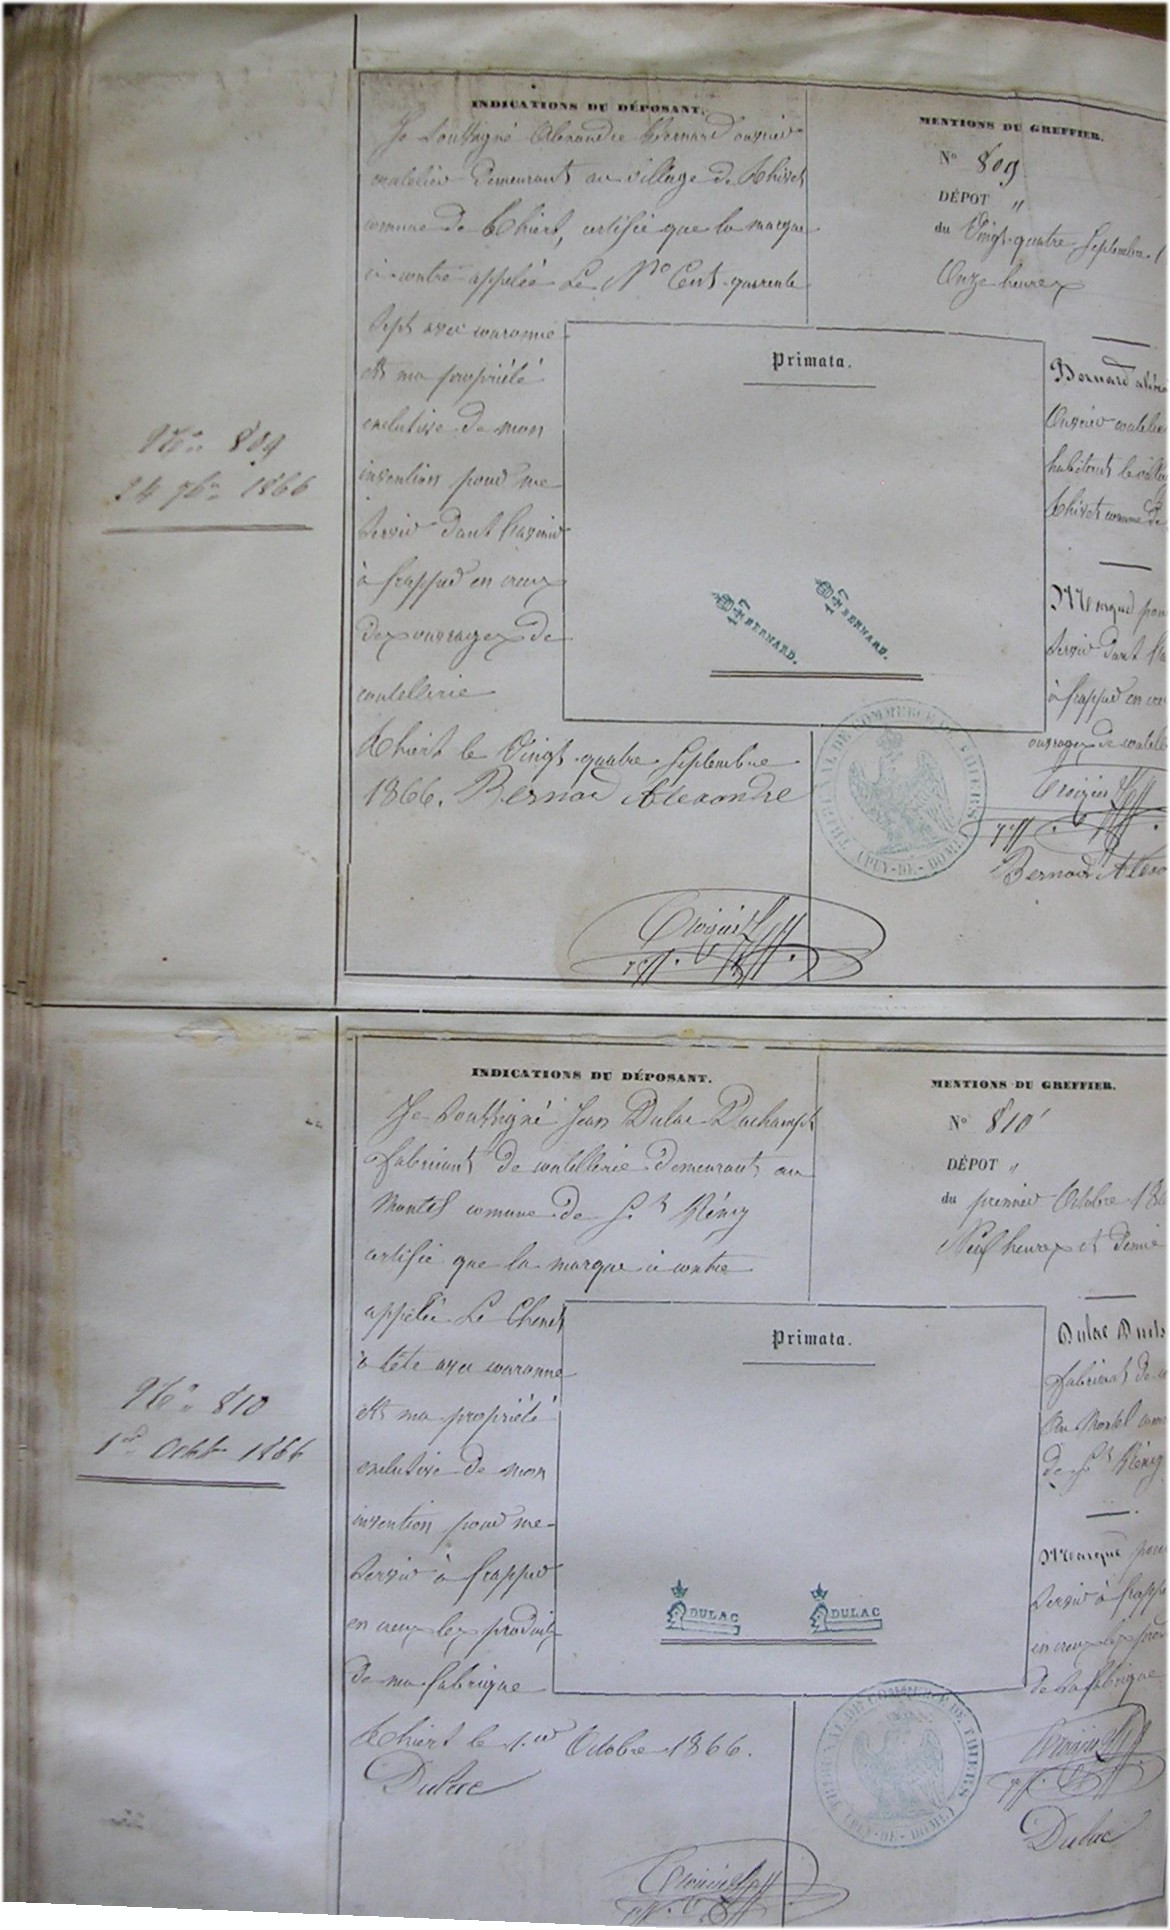 N° 809
24 7bre 1866
INDICATIONS DU DÉPOSANT.
Je soussigné Alexandre Bernard ouvrier
coutelier demeurant au village de
comune de Thiert, certifie que la marque
ci contre appelée Le N° Cent quarente
sept avec couronne
est ma propriété
exclusive de mon
invention pour me
servir dant l'avenir
à frapper en creux
des ouvrages de
coutellerie
Thiert le Vingt quatre Septembre
1866. Bernard Alexandre
MENTIONS DU GREFFIER.
N° 809
DÉPOT "
du Vingt quatre Septembre
Onze heures
Primata.
BERNARD.
BERNARD.
Bernard
Ouvrier
habitant le
comune de
Marque pour
servir dant
à frapper en
ouvrages de
Bernard
TRIBUNAL DE COMMERCE DE THIERS
(PUY-DE-DOME)
N° 810
1er Octb 1866
INDICATIONS DU DÉPOSANT.
Je soussigné Jean Dulac Duchampt
fabricant de coutellerie demeurant au
Montel comune de St Rémy
certifie que la marque ci contre
appelée Le
à tête avec couronne
est ma propriété
exclusive de mon
invention pour me
servir à frapper
en creux les produits
de ma fabrique
Thiert le 1er Octobre 1866.
Dulac
MENTIONS DU GREFFIER.
N° 810
DÉPOT "
du premier Octobre
Neuf heures et demie
Primata.
DULAC
DULAC
Dulac
fabricant de
Au Montel
de St Rémy
Marque pour
servir à
en creux les
de sa fabrique
Dulac
TRIBUNAL DE COMMERCE DE THIERS
(PUY-DE-DOME)